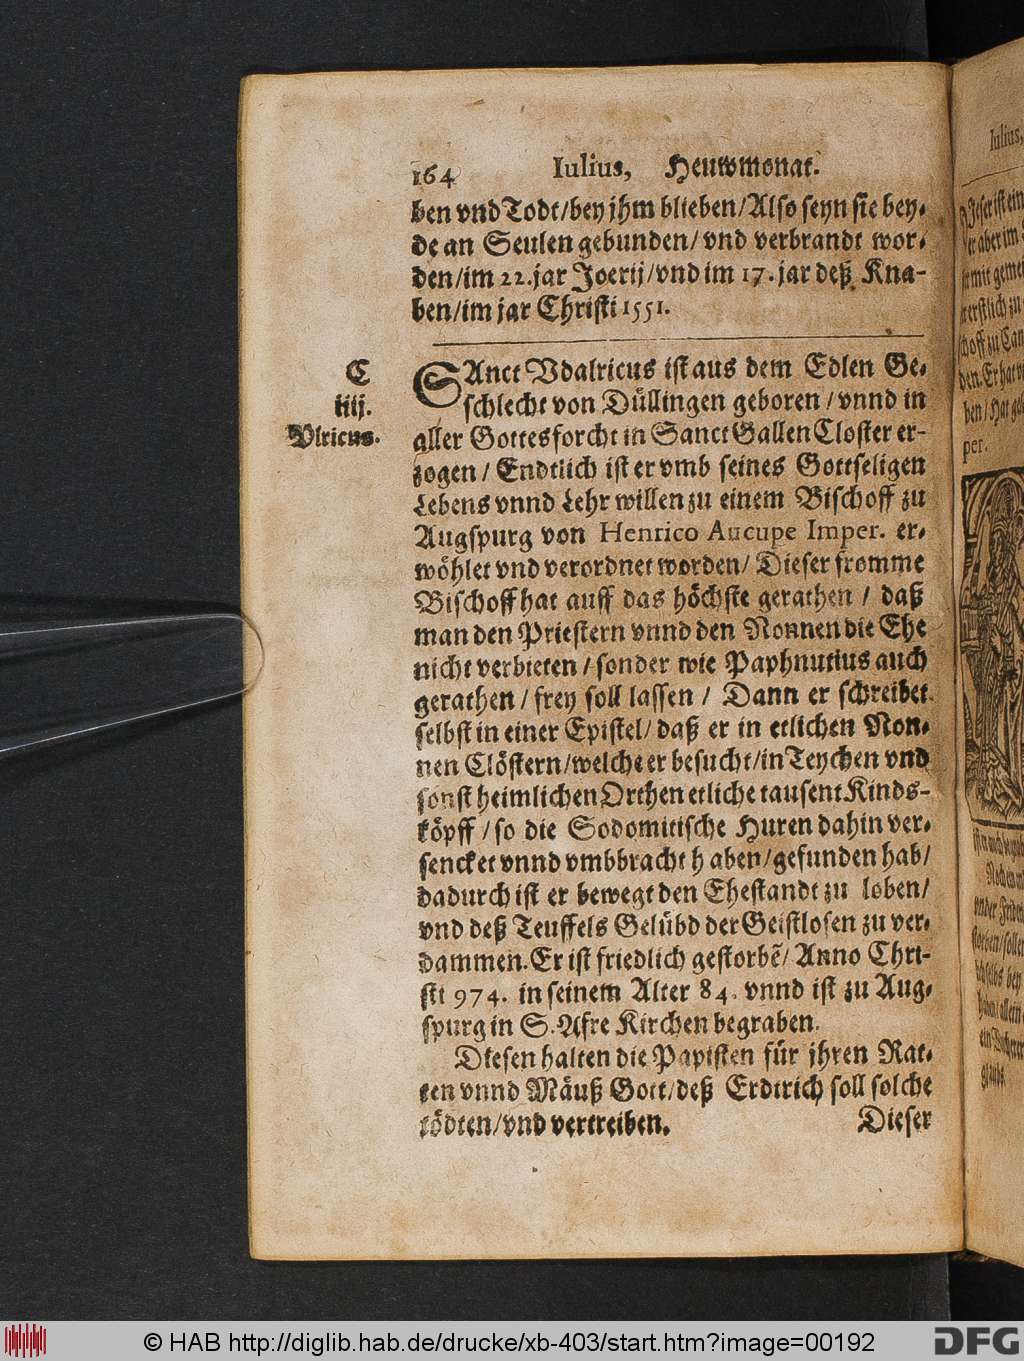 164 Iulius, Heuwmonat.
ben vnd Todt/bey jhm blieben/Also seyn sie bey-
de an Seulen gebunden/ vnd verbrandt wor-
den/im 22. jar Joerij/vnd im 17. jar deß Kna-
ben/im jar Christi 1551.
C
iiij.
Vlricus.
SAnct Vdalricus ist aus dem Edlen Ge-
schlecht von Düllingen geboren / vnnd in
aller Gottesforcht in Sanct Gallen Closter er-
zogen / Endtlich ist er vmb seines Gottseligen
Lebens vnnd Lehr willen zu einem Bischoff zu
Augspurg von Henrico Aucupe Imper. er-
wöhlet vnd verordnet worden/ Dieser fromme
Bischoff hat auff das höchste gerathen / daß
man den Priestern vnnd den Nonnen die Ehe
nicht verbieten / sonder wie Paphnutius auch
gerathen / frey soll lassen / Dann er schreibet
selbst in einer Epistel/ daß er in etlichen Non-
nen Clöstern/welche er besucht/in Teychen vnd
sonst heimlichen Orthen etliche tausent Kinds-
köpff / so die Sodomitische Huren dahin ver-
sencket vnnd vmbbracht haben/gefunden hab/
dadurch ist er bewegt den Ehestandt zu loben/
vnd deß Teuffels Gelübd der Geistlosen zu ver-
dammen. Er ist friedlich gestorbẽ/ Anno Chri-
sti 974. in seinem Alter 84. vnnd ist zu Aug-
spurg in S. Afre Kirchen begraben.
Diesen halten die Papisten für jhren Rat-
ten vnnd Mäuß Gott/deß Erdtrich soll solche
tödten/vnd vertreiben. Dieser
Iulius,
per.
© HAB http://diglib.hab.de/drucke/xb-403/start.htm?image=00192
DFG